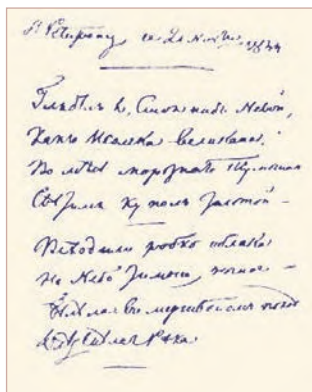 1844
Глядѣлъ я, стоя надъ Невой,
Какъ Исаака великана
Во мглѣ морознаго тумана
Свѣтился куполъ золотой –
Всходили робко облака
На небо зимнее, ночное –
Бѣлѣла въ мертвенномъ покоѣ
Оледенѣлая рѣка.